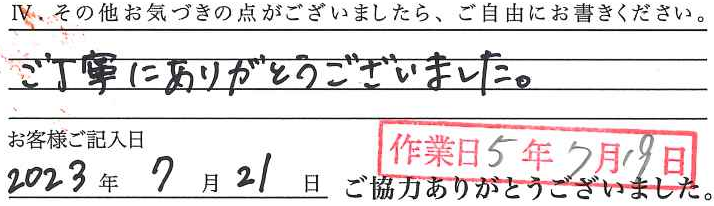 Ⅳ、その他お気づきの点がございましたら、ご自由にお書きください。
ご丁寧にありがとうございました。
お客様ご記入日
作業日5年7月19日
2023年7月21日
ご協力ありがとうございました。